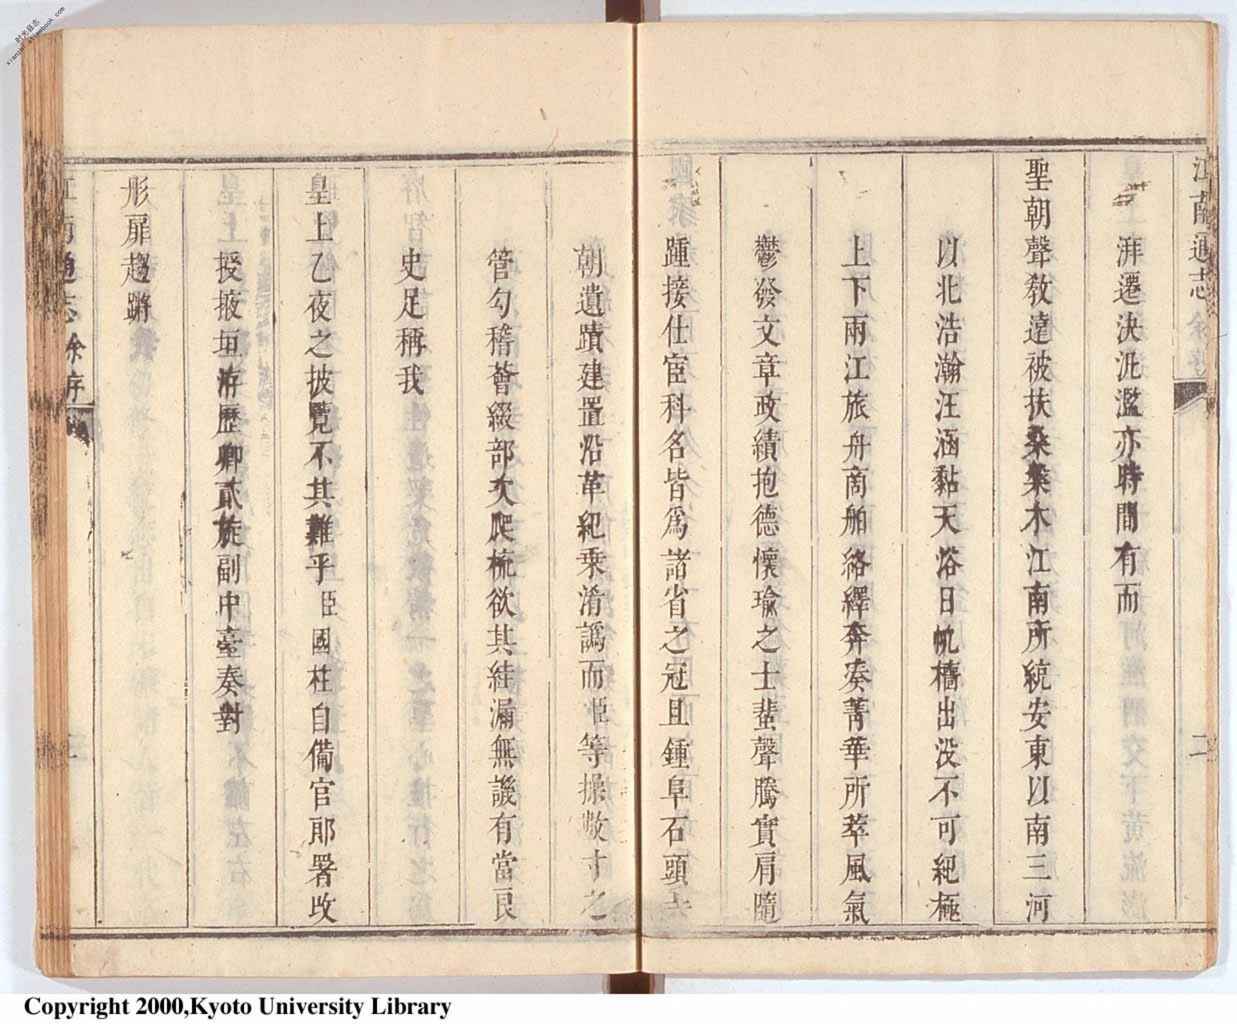 江南通志 余序 二
湃遷決泚濫亦時間有而
聖朝聲敎達被扶桑槃木江南所統安東以南三河
以北浩瀚汪涵黏天浴日帆檣出没不可紀極
上下兩江旅舟商舶絡繹奔湊菁華所萃風氣
鬱發文章政績抱德懷瑜之士蜚聲騰實肩隨
踵接仕宦科名皆爲諸省之冠且鍾阜石頭六
朝遺蹟建置沿革紀乗淆譌而臣等操數寸之
管勾稽薈綴部次爬梳欲其絓漏無譏有當良
史足稱我
皇上乙夜之披覽不其難乎臣國柱自備官郎署改
皇上授掖垣游歷卿貳旋副中臺奏對
彤扉趨蹡
江南通志 余序 二
Copyright 2000,Kyoto University Library